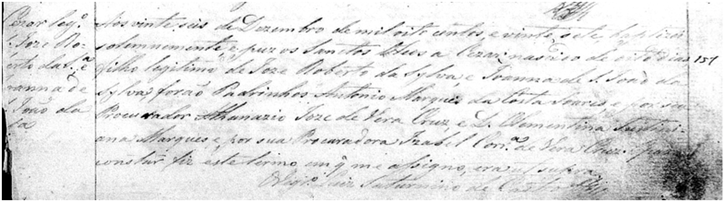 Cezar leg.º
Joze Ro-
Joanna de
S. João da
Sa
Aos vinte seis de Dezembro de mil oito centos, e vinte, sete, baptizei
solemnemente, e puz os Sanctos Oleos a Cezar nascido de oito dias 157
filho legitimo, de Joze Roberto da Sylva e Joanna de S. João da
Sylva, forão Padrinhos Antonio Marques da Costa Soares, e por seu
Procurador Athanazio Joze de Vera Cruz e D. Clementina
ana Marques, e por sua Procuradora Izabel Cor.ª de Vera Cruz. para
constar fiz este termo em q me assigno, era ut supra
Vig.º Luiz Saturnino de